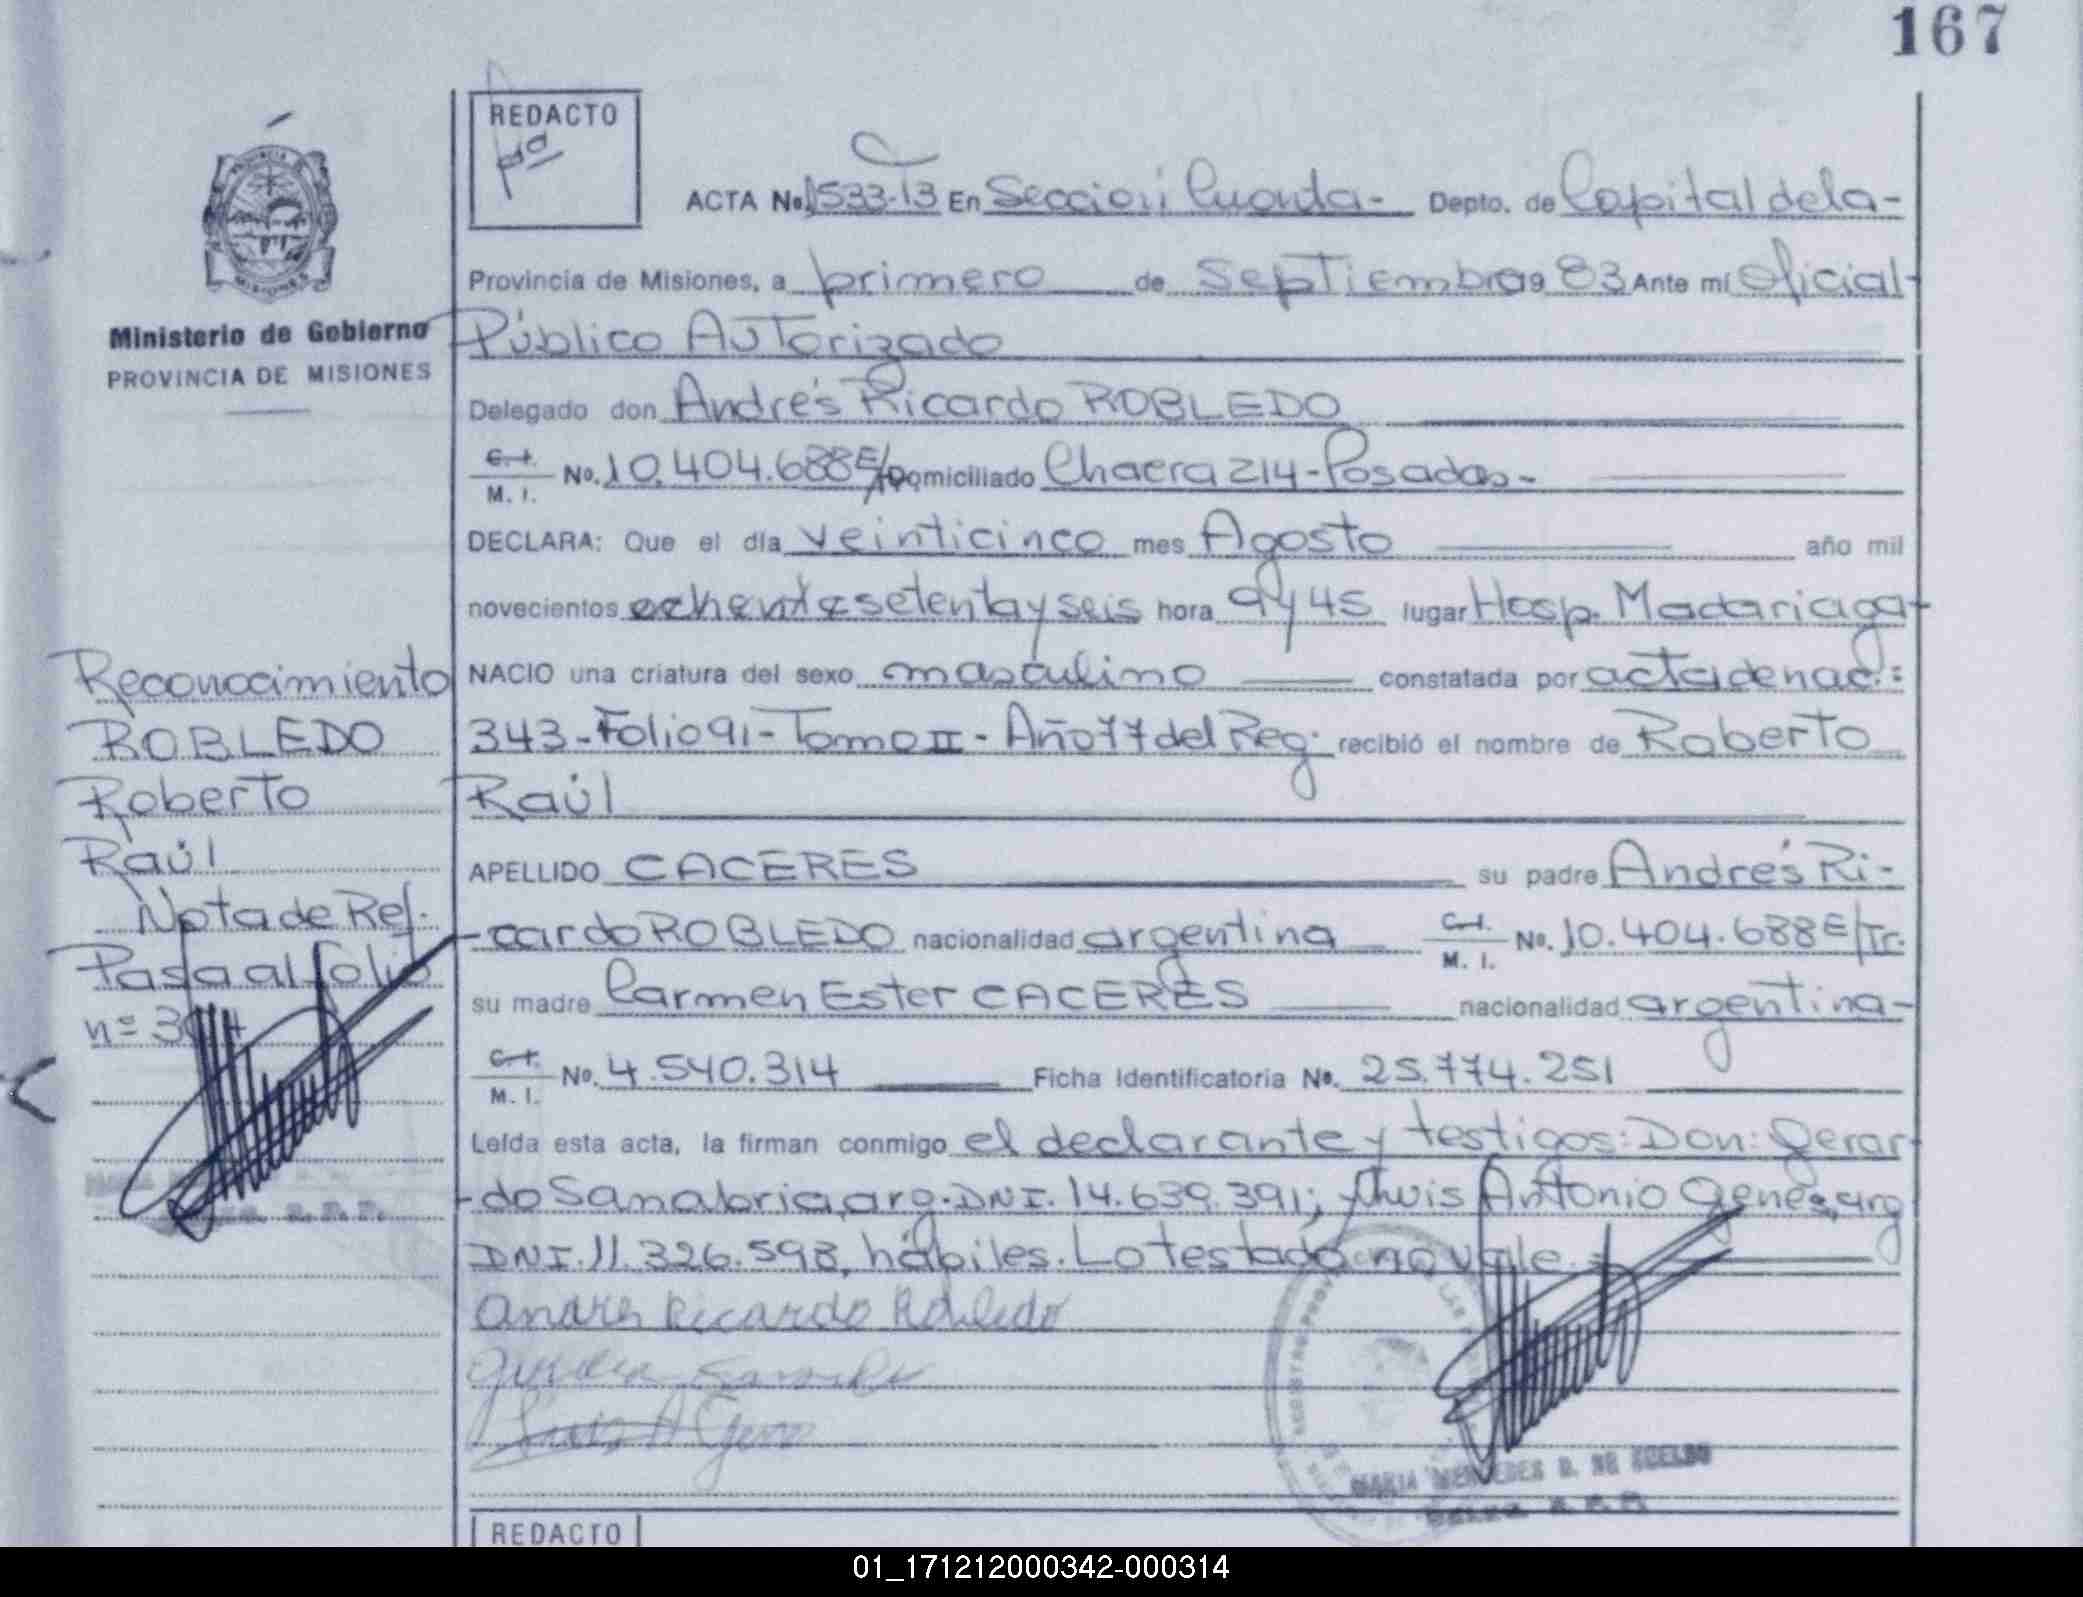 167
REDACTO
ACTA No. 1533-T3 En Sección Cuarta- Depto. de Capital de la-
Provincia de Misiones, a primero de Septiembre 19 83 Ante mí Oficial-
Público Autorizado
Delegado don Andrés Ricardo ROBLEDO
C.I.
M. I. No. 10.404.688 E/Tr Domiciliado Chacra 214-Posadas-
DECLARA: Que el día veinticinco mes Agosto año mil
novecientos ochenta setenta y seis hora 9 y 45 lugar Hosp. Madariaga-
NACIO una criatura del sexo masculino constatada por acta de nac.:
343-Folio 91-Tomo II-Año 77 del Reg. recibió el nombre de Roberto
Raúl
APELLIDO CACERES su padre Andrés Ri-
-cardo ROBLEDO nacionalidad argentina C.I.
M. I. No. 10.404.688 E/Tr.
su madre Carmen Ester CACERES nacionalidad argentina-
C.I.
M. I. No. 4.540.314 Ficha Identificatoria No. 25.774.251
Leída esta acta, la firman conmigo el declarante y testigos: Don: Gerar-
-do Sanabria, arg. DNI. 14.639.391; y Luis Antonio Genes, arg
DNI. 11.326.598, hábiles. Lo testado no vale.
Andres Ricardo Robledo
MARIA MERCEDES
REDACTO
Ministerio de Gobierno
PROVINCIA DE MISIONES
Reconocimiento
ROBLEDO
Roberto
Raúl
Nota de Ref.
Pasa al folio
nº
01_171212000342-000314